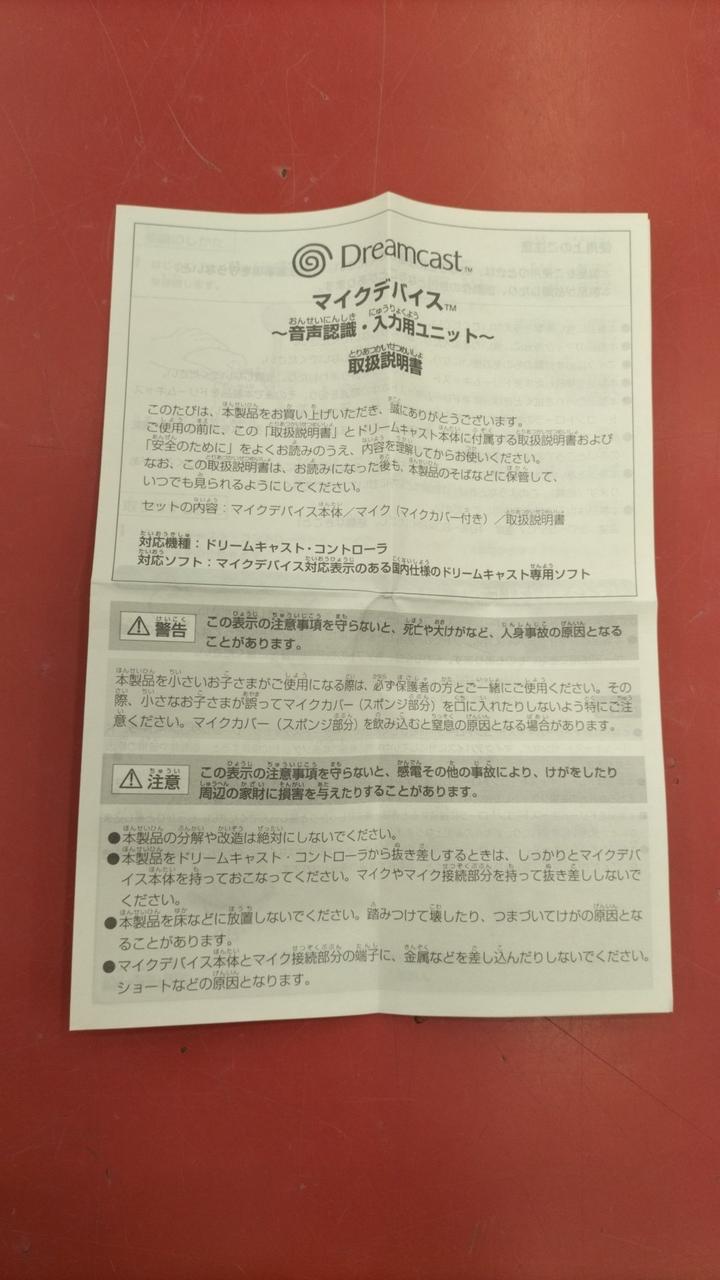 Dreamcast™
マイクデバイス™
～音声認識・入力用ユニット～
取扱説明書
このたびは、本製品をお買い上げいただき、誠にありがとうございます。
ご使用の前に、この「取扱説明書」とドリームキャスト本体に付属する取扱説明書および
「安全のために」をよくお読みのうえ、内容を理解してからお使いください。
なお、この取扱説明書は、お読みになった後も、本製品のそばなどに保管して、
いつでも見られるようにしてください。
セットの内容：マイクデバイス本体／マイク（マイクカバー付き）／取扱説明書
対応機種：ドリームキャスト・コントローラ
対応ソフト：マイクデバイス対応表示のある国内仕様のドリームキャスト専用ソフト
⚠警告 この表示の注意事項を守らないと、死亡や大けがなど、人身事故の原因となる
ことがあります。
本製品を小さいお子さまがご使用になる際は、必ず保護者の方とご一緒にご使用ください。その
際、小さなお子さまが誤ってマイクカバー（スポンジ部分）を口に入れたりしないよう特にご注
意ください。マイクカバー（スポンジ部分）を飲み込むと窒息の原因となる場合があります。
⚠注意 この表示の注意事項を守らないと、感電その他の事故により、けがをしたり
周辺の家財に損害を与えたりすることがあります。
●本製品の分解や改造は絶対にしないでください。
●本製品をドリームキャスト・コントローラから抜き差しするときは、しっかりとマイクデバ
イス本体を持っておこなってください。マイクやマイク接続部分を持って抜き差ししないで
ください。
●本製品を床などに放置しないでください。踏みつけて壊したり、つまづいてけがの原因とな
ることがあります。
●マイクデバイス本体とマイク接続部分の端子に、金属などを差し込んだりしないでください。
ショートなどの原因となります。